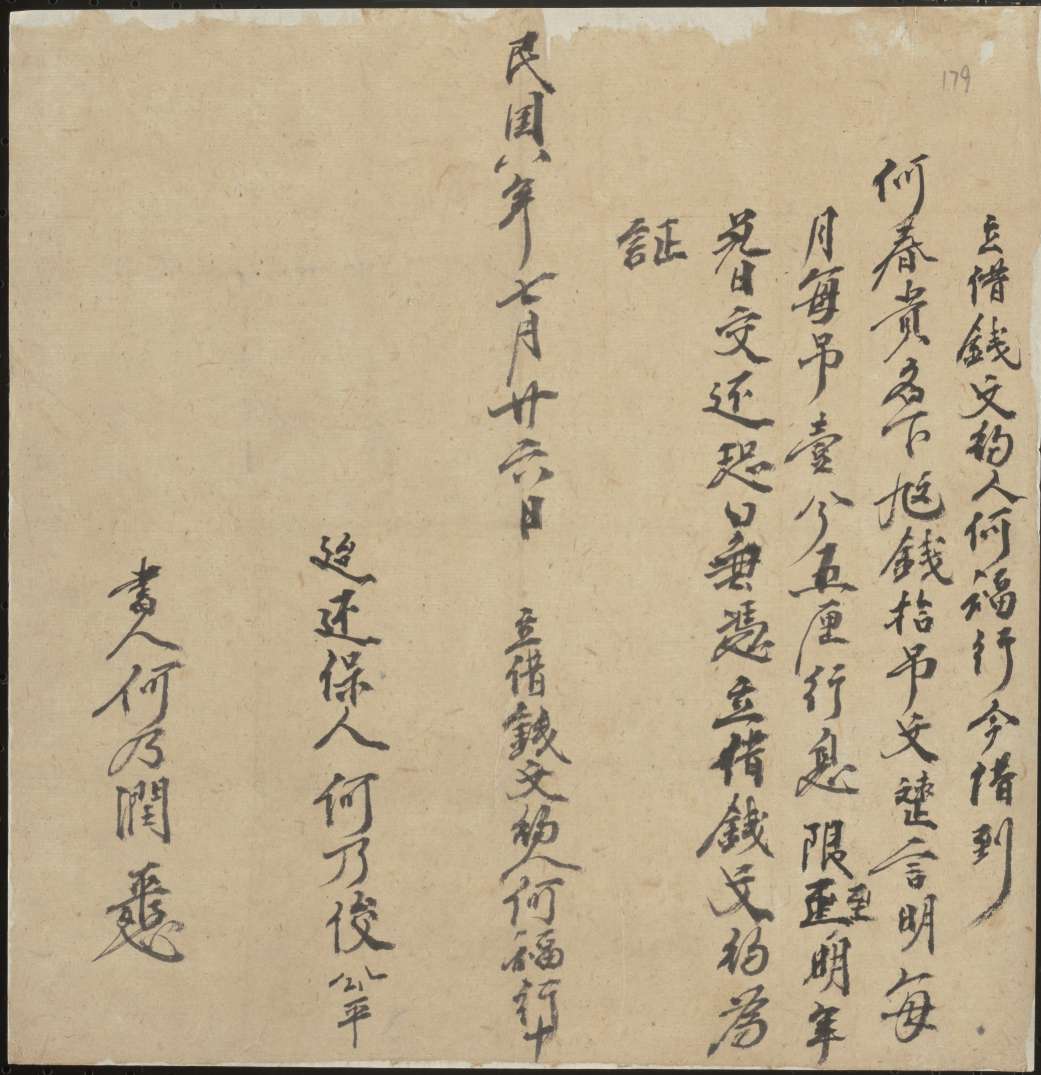 179
立借錢文約人何福行今借到
何春貴名下尅錢拾吊文整言明每
月每吊壹分五厘行息限至明年
兑日交还恐口無憑立借錢文約為
証
民国八年七月廿六日 立借錢文約人何福行十
还保人何乃俊
書人何乃潤